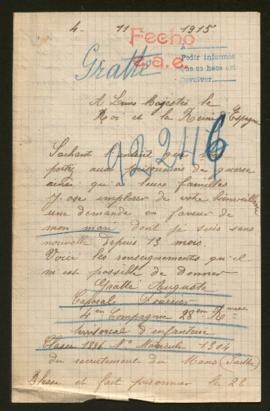 4. 11 1915
Fecho
c.a.e.
Pedir informes
devolver
Gratte
A Leurs Majestés le
Roi et la Reine d'Espagne
12246
Sachant
portez aux prisonniers de guerre
ainsi qu'à leurs familles
j'ose implorer de votre bienveillance
une demande en faveur de
mon mari dont je suis sans
nouvelle depuis 13 mois.
Voici les renseignements qu'il
m'est possible de donner
Gratte Auguste
Caporal Fourrier
4em Compagnie 28em R
territorial d'infanterie
Classe 1896 No Matricule 1304
du recrutement du Mans (Sarthe)
Blessé et fait prisonnier le 28